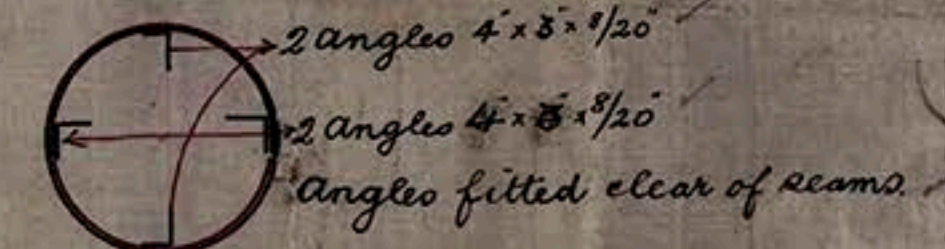 2 angles 4" x 3" x 8/20"
2 angles 4" x 3" x 8/20"
Angles fitted clear of seams.